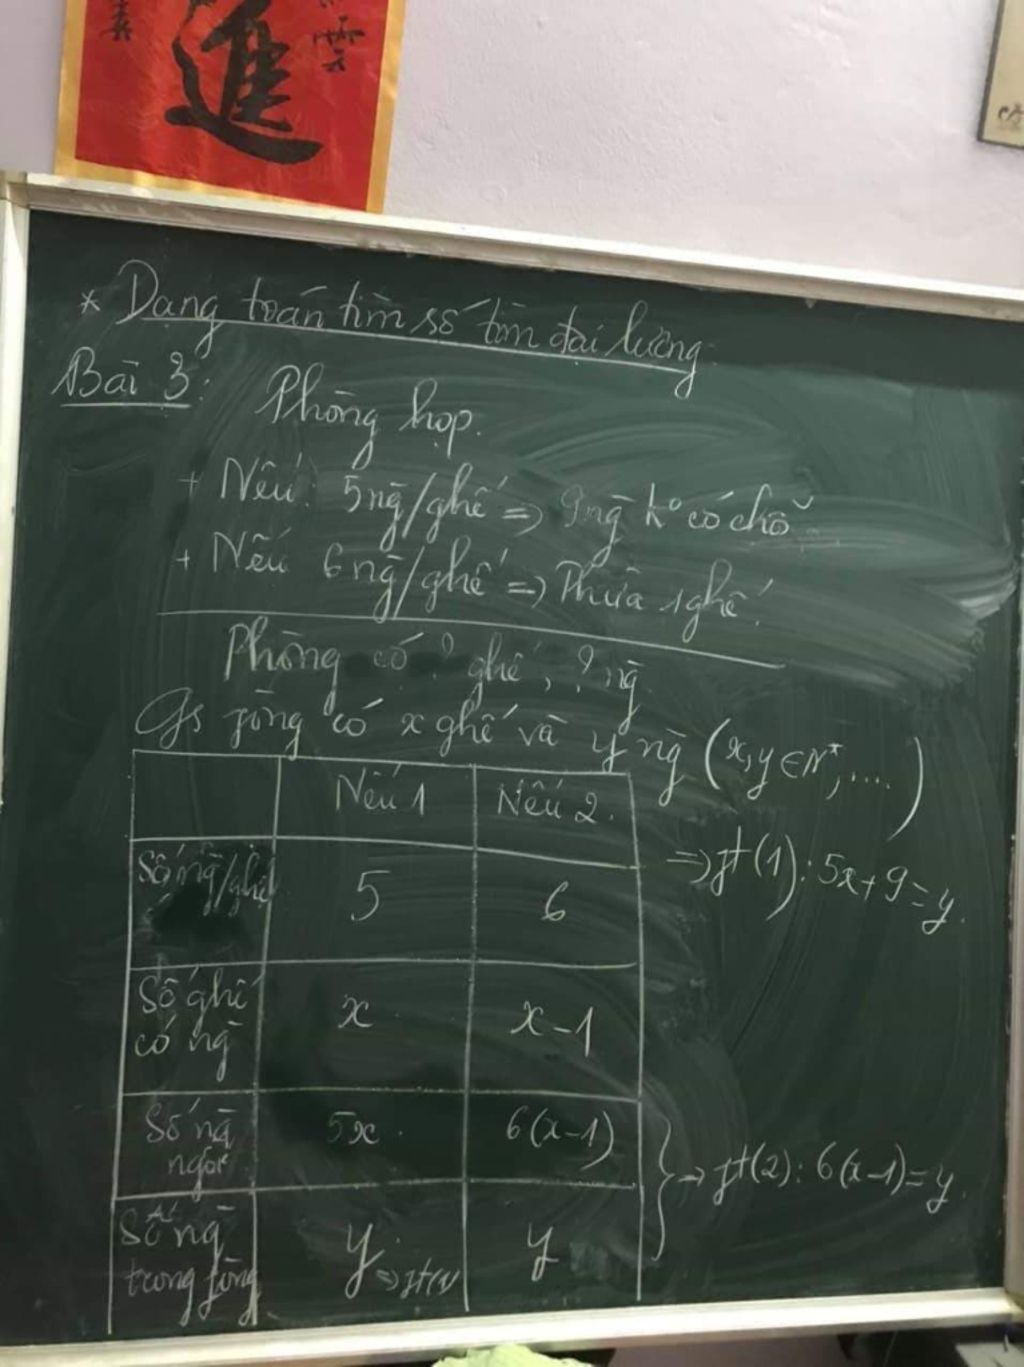 進
* Dạng toán tìm số tìm đại lượng
Bài 3: Phòng họp.
+ Nếu: 5 ng̀/ghế => 9 ng̀ kº có chỗ
+ Nếu 6 ng̀/ghế => Thừa 1 ghế.
Phòng có ? ghế, ? ng̀
Gs fòng có x ghế và y ng̀ (x, y ∈ N*, ....)
Nếu 1 Nếu 2.
Số ng̀/ghế 5 6
=> ft(1): 5x + 9 = y.
Số ghế có ng̀ x x - 1
Số ng̀ ngồi 5x. 6(x-1)
=> ft(2): 6(x-1) = y.
Số ng̀ trong fòng y => ft(1) y